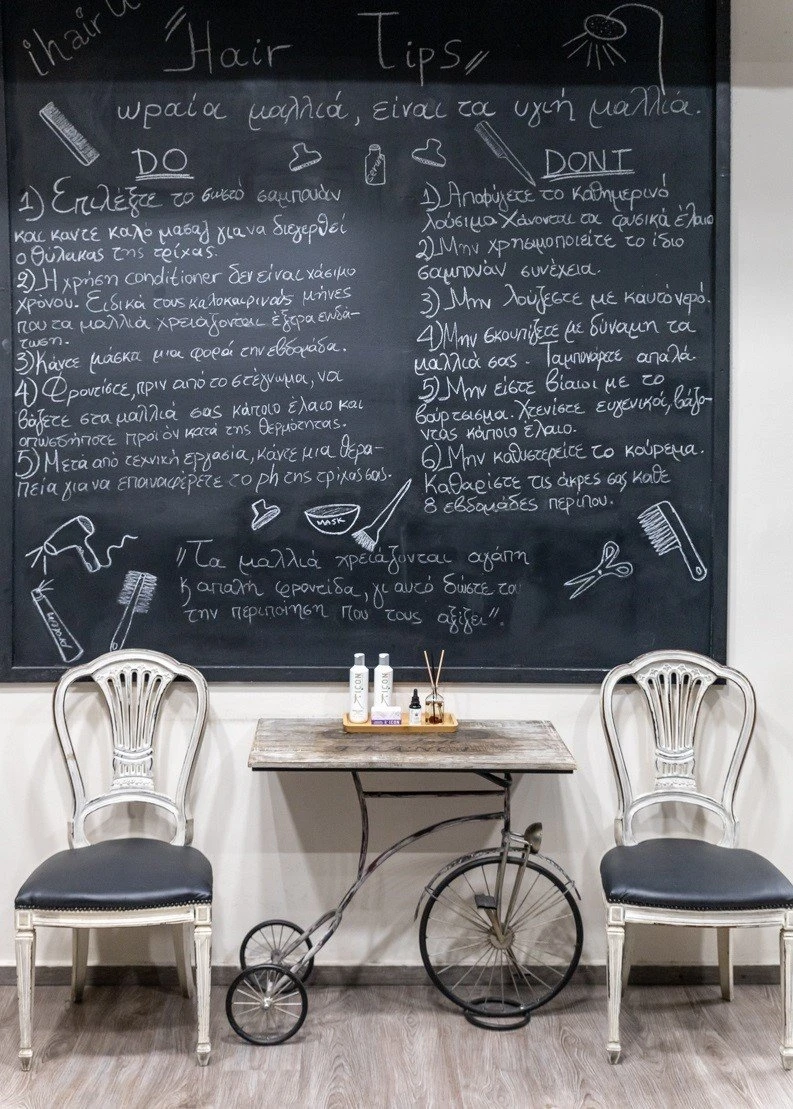 ihair
"Hair Tips"
ωραία μαλλιά, είναι τα υγιή μαλλιά.
DO
1) Επιλέξτε το σωστό σαμπουάν
και κάντε καλό μασάζ για να διεγερθεί
ο θύλακας της τρίχας.
2) Η χρήση conditioner δεν είναι χάσιμο
χρόνου. Ειδικά τους καλοκαιρινούς μήνες
που τα μαλλιά χρειάζονται έξτρα ενυδά-
τωση.
3) Κάντε μάσκα μια φορά την εβδομάδα.
4) Φροντίστε, πριν από το στέγνωμα, να
βάζετε στα μαλλιά σας κάποιο έλαιο και
οπωσδήποτε προϊόν κατά της θερμότητας.
5) Μετά από τεχνική εργασία, κάντε μια θερα-
πεία για να επαναφέρετε το ph της τρίχας σας.
DONT
1) Αποφύγετε το καθημερινό
λούσιμο. Χάνονται τα φυσικά έλαια
2) Μην χρησιμοποιείτε το ίδιο
σαμπουάν συνέχεια.
3) Μην λούζεστε με καυτό νερό.
4) Μην σκουπίζετε με δύναμη τα
μαλλιά σας. Ταμπονάρετε απαλά.
5) Μην είστε βίαιοι με το
βούρτσισμα. Χτενίστε ευγενικοί, βάζο-
ντας κάποιο έλαιο.
6) Μην καθυστερείτε το κούρεμα.
Καθαρίστε τις άκρες σας κάθε
8 εβδομάδες περίπου.
MASK
"Τα μαλλιά χρειάζονται αγάπη
& απαλή φροντίδα, γι αυτό δώστε του
την περιποίηση που τους αξίζει".
ICON
ICON